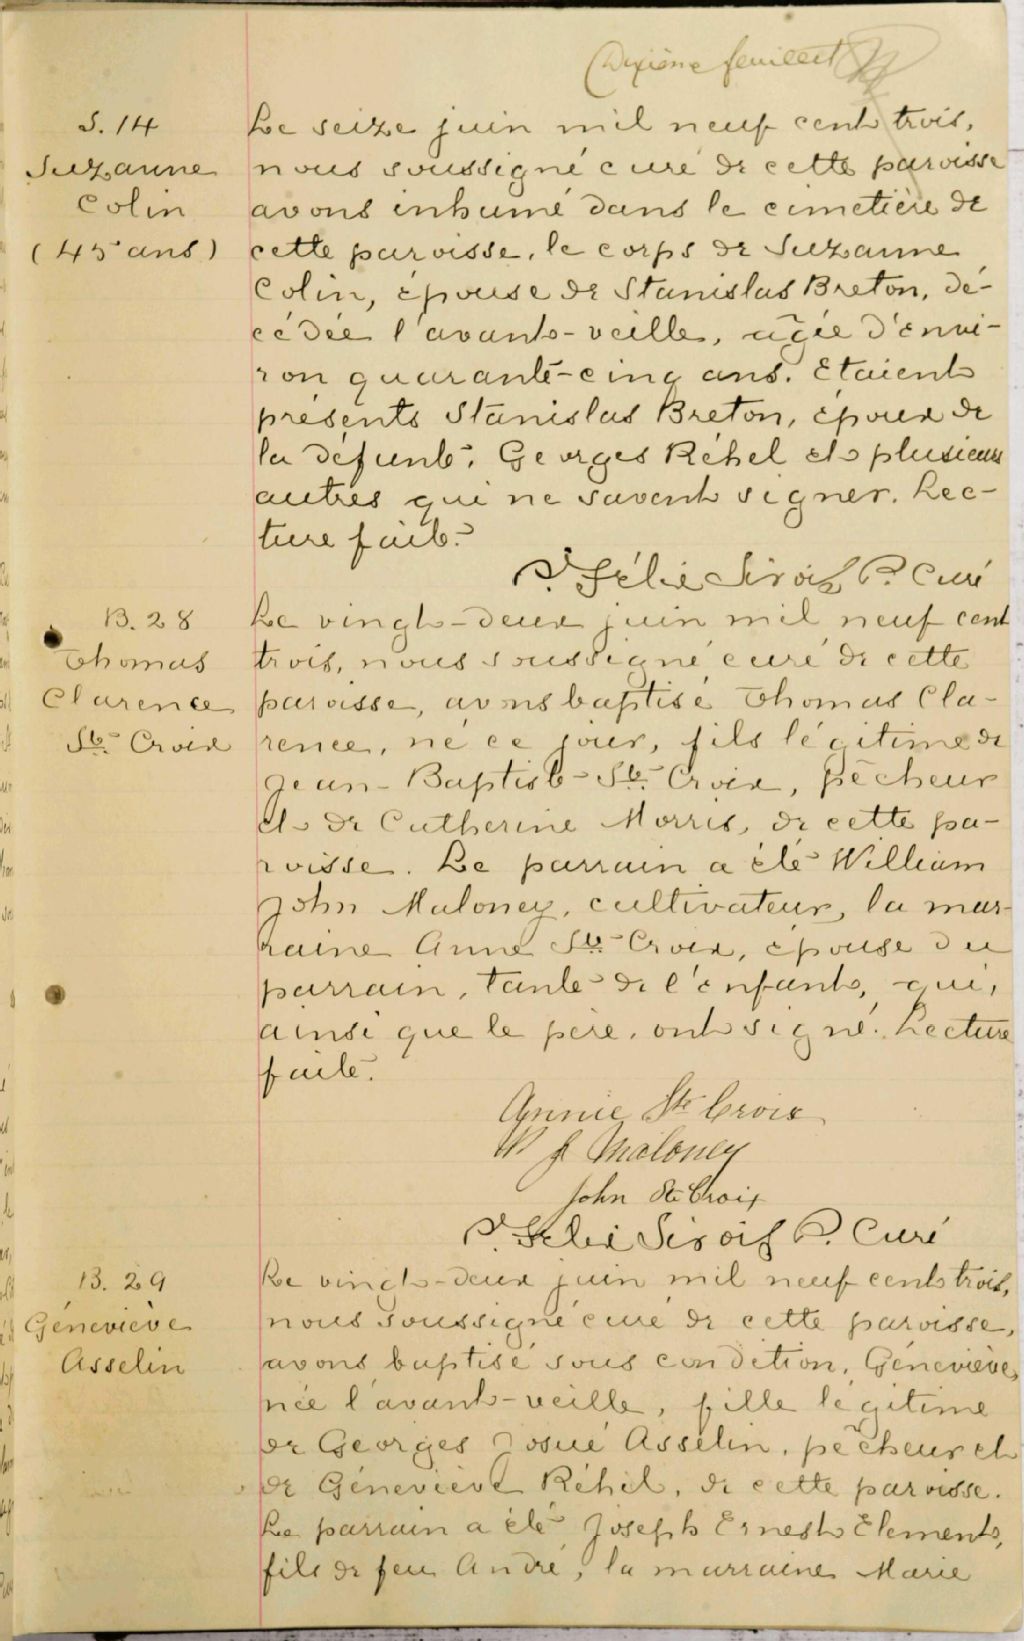 Dixième feuillet
S. 14
Suzanne
Colin
(45 ans)
Le seize juin mil neuf cent trois,
nous soussigné curé de cette paroisse
avons inhumé dans le cimetière de
cette paroisse, le corps de Suzanne
Colin, épouse de Stanislas Breton, dé-
cédée l'avant-veille, agée d'envi-
ron quarante-cinq ans. Etaient
présents Stanislas Breton, époux de
la défunte, Georges Réhel et plusieurs
autres qui ne savent signer. Lec-
ture faite.
J. Félix Sirois P. Curé
B. 28
Thomas
Clarence
Ste Croix
Le vingt-deux juin mil neuf cent
trois, nous soussigné curé de cette
paroisse, avons baptisé Thomas Cla-
rence, né ce jour, fils légitime de
Jean-Baptiste Ste Croix, pêcheur
et de Catherine Morris, de cette pa-
roisse. Le parrain a été William
John Maloney, cultivateur, la mar-
raine Anne Ste Croix, épouse du
parrain, tante de l'enfant, qui,
ainsi que le père, ont signé. Lecture
faite.
Annie Ste Croix
W J Maloney
John Ste Croix
J. Felix Sirois P. Curé
B. 29
Géneviève
Asselin
Le vingt-deux juin mil neuf cent trois,
nous soussigné curé de cette paroisse,
avons baptisé sous condition, Géneviève,
née l'avant-veille, fille légitime
de Georges Josué Asselin, pêcheur et
de Géneviève Réhel, de cette paroisse.
Le parrain a été Joseph Ernest Element,
fils de feu André, la marraine Marie